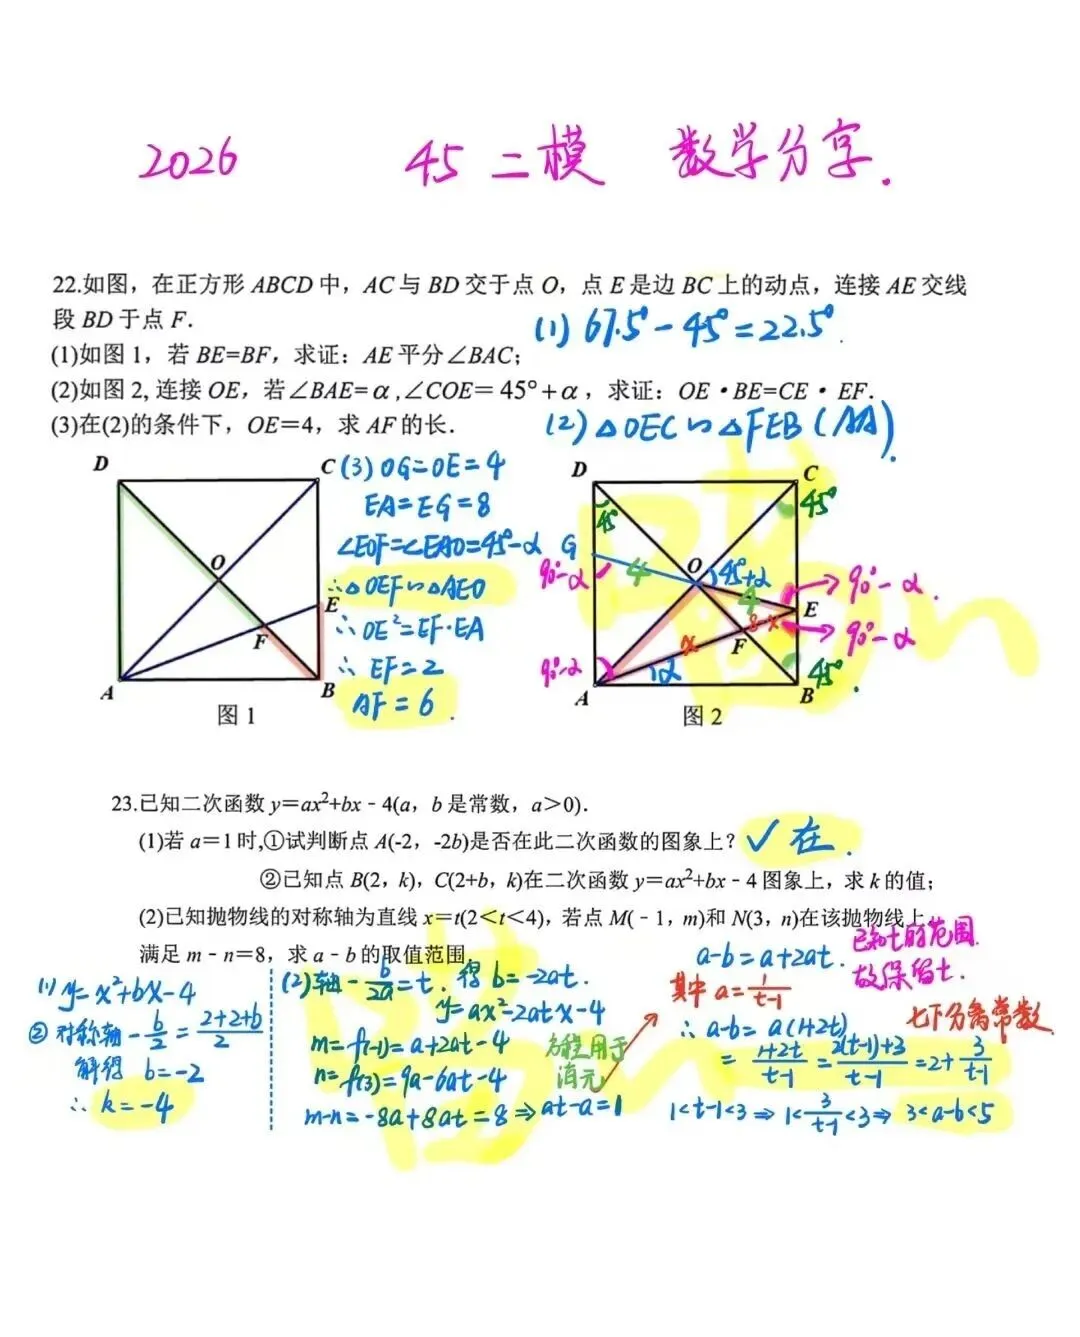 2026 45 二模 数学分享.
22.如图，在正方形 ABCD 中，AC 与 BD 交于点 O，点 E 是边 BC 上的动点，连接 AE 交线
段 BD 于点 F．
(1) 67.5°-45°=22.5°.
(1)如图 1，若 BE=BF，求证：AE 平分∠BAC；
(2)如图 2, 连接 OE，若∠BAE=α,∠COE=45°+α，求证：OE·BE=CE·EF.
(3)在(2)的条件下，OE=4，求 AF 的长．
(2) △OEC∽△FEB (AA).
D
C
O
E
F
A
B
图 1
(3) OG=OE=4
EA=EG=8
∠EOF=∠EAO=45°-α
∴△OEF∽△AEO
∴OE²=EF·EA
∴ EF=2
AF=6.
D
C
45°
45°
G
90°-α
4
O
45°+α
90°-α.
4
E
8-x
90°-α
x
F
90°-α
α
45°.
A
B
图 2
23.已知二次函数 y=ax²+bx﹣4(a，b 是常数，a>0)．
(1)若 a=1 时,①试判断点 A(-2，-2b)是否在此二次函数的图象上？
✓在.
②已知点 B(2，k)，C(2+b，k)在二次函数 y=ax²+bx﹣4 图象上，求 k 的值；
(2)已知抛物线的对称轴为直线 x=t(2<t<4)，若点 M(﹣1，m)和 N(3，n)在该抛物线上，
满足 m﹣n=8，求 a﹣b 的取值范围.
(1) y=x²+bx-4
② 对称轴 -b/2=(2+2+b)/2
解得 b=-2
∴ k=-4
(2)轴 -b/2a=t. 得 b=-2at.
y=ax²-2atx-4
m=f(-1)=a+2at-4
n=f(3)=9a-6at-4
m-n=-8a+8at=8⇒at-a=1
方程用于
消元
a-b=a+2at.
已知t的范围.
故保留t.
其中 a=1/(t-1)
∴a-b=a(1+2t)
七下分离常数.
=(1+2t)/(t-1)=(2(t-1)+3)/(t-1)=2+3/(t-1)
1<t-1<3⇒1<3/(t-1)<3⇒3<a-b<5